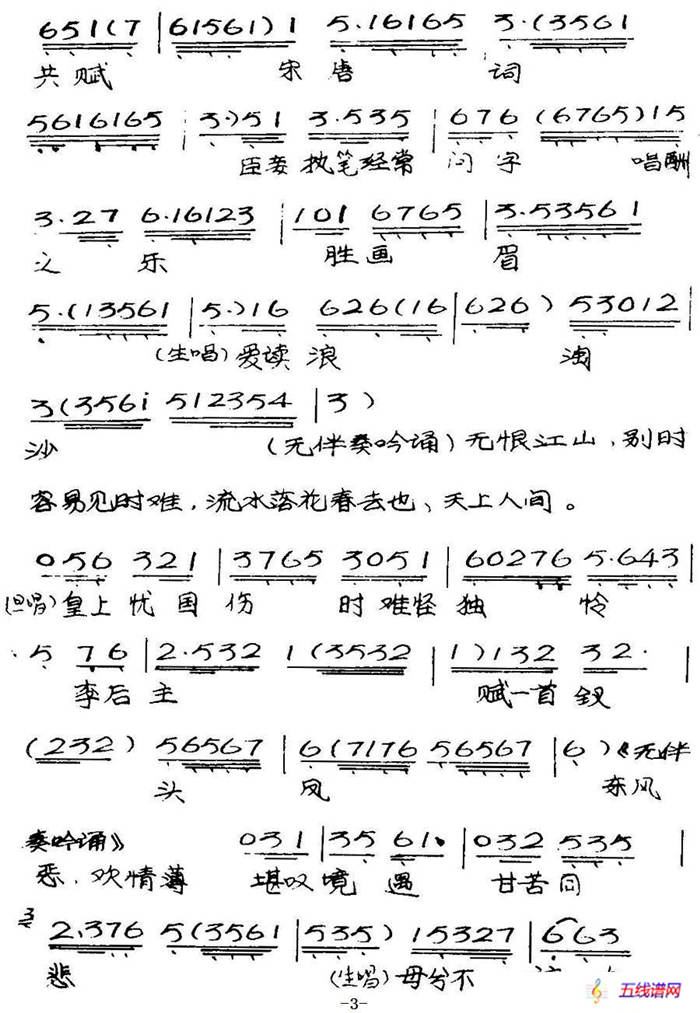 651(7 | 61561) 1 5.16165 3.(3561
共赋 宋唐 词
5616165 | 3.)51 3.535 | 676 (6765)15
臣妾执笔经常 问字 唱酬
3.27 6.16123 | 101 6765 | 3.53561
之乐 胜画 眉
5.(13561 | 5.)16 626(16 | 626) 53012 |
(生唱)爱读浪 淘
3(356i 512354 | 3)
沙 (无伴奏吟诵)无恨江山,别时
容易见时难,流水落花春去也、天上人间。
056 321 | 3765 3051 | 60276 5.643 |
(旦唱)皇上忧国伤 时难怪独 怜
5 76 | 2.532 1(3532 | 1)132 32. |
李后主 赋一首钗
(232) 56567 | 6(7176 56567 | 6)《无伴
头 凤 东风
奏吟诵》 031 | 35 61. | 032 535 |
恶、欢情薄 堪叹境遇 甘苦同
2.376 5(3561 | 535) 15327 | 663
悲 (生唱)毋兮不
五线谱网
-3-